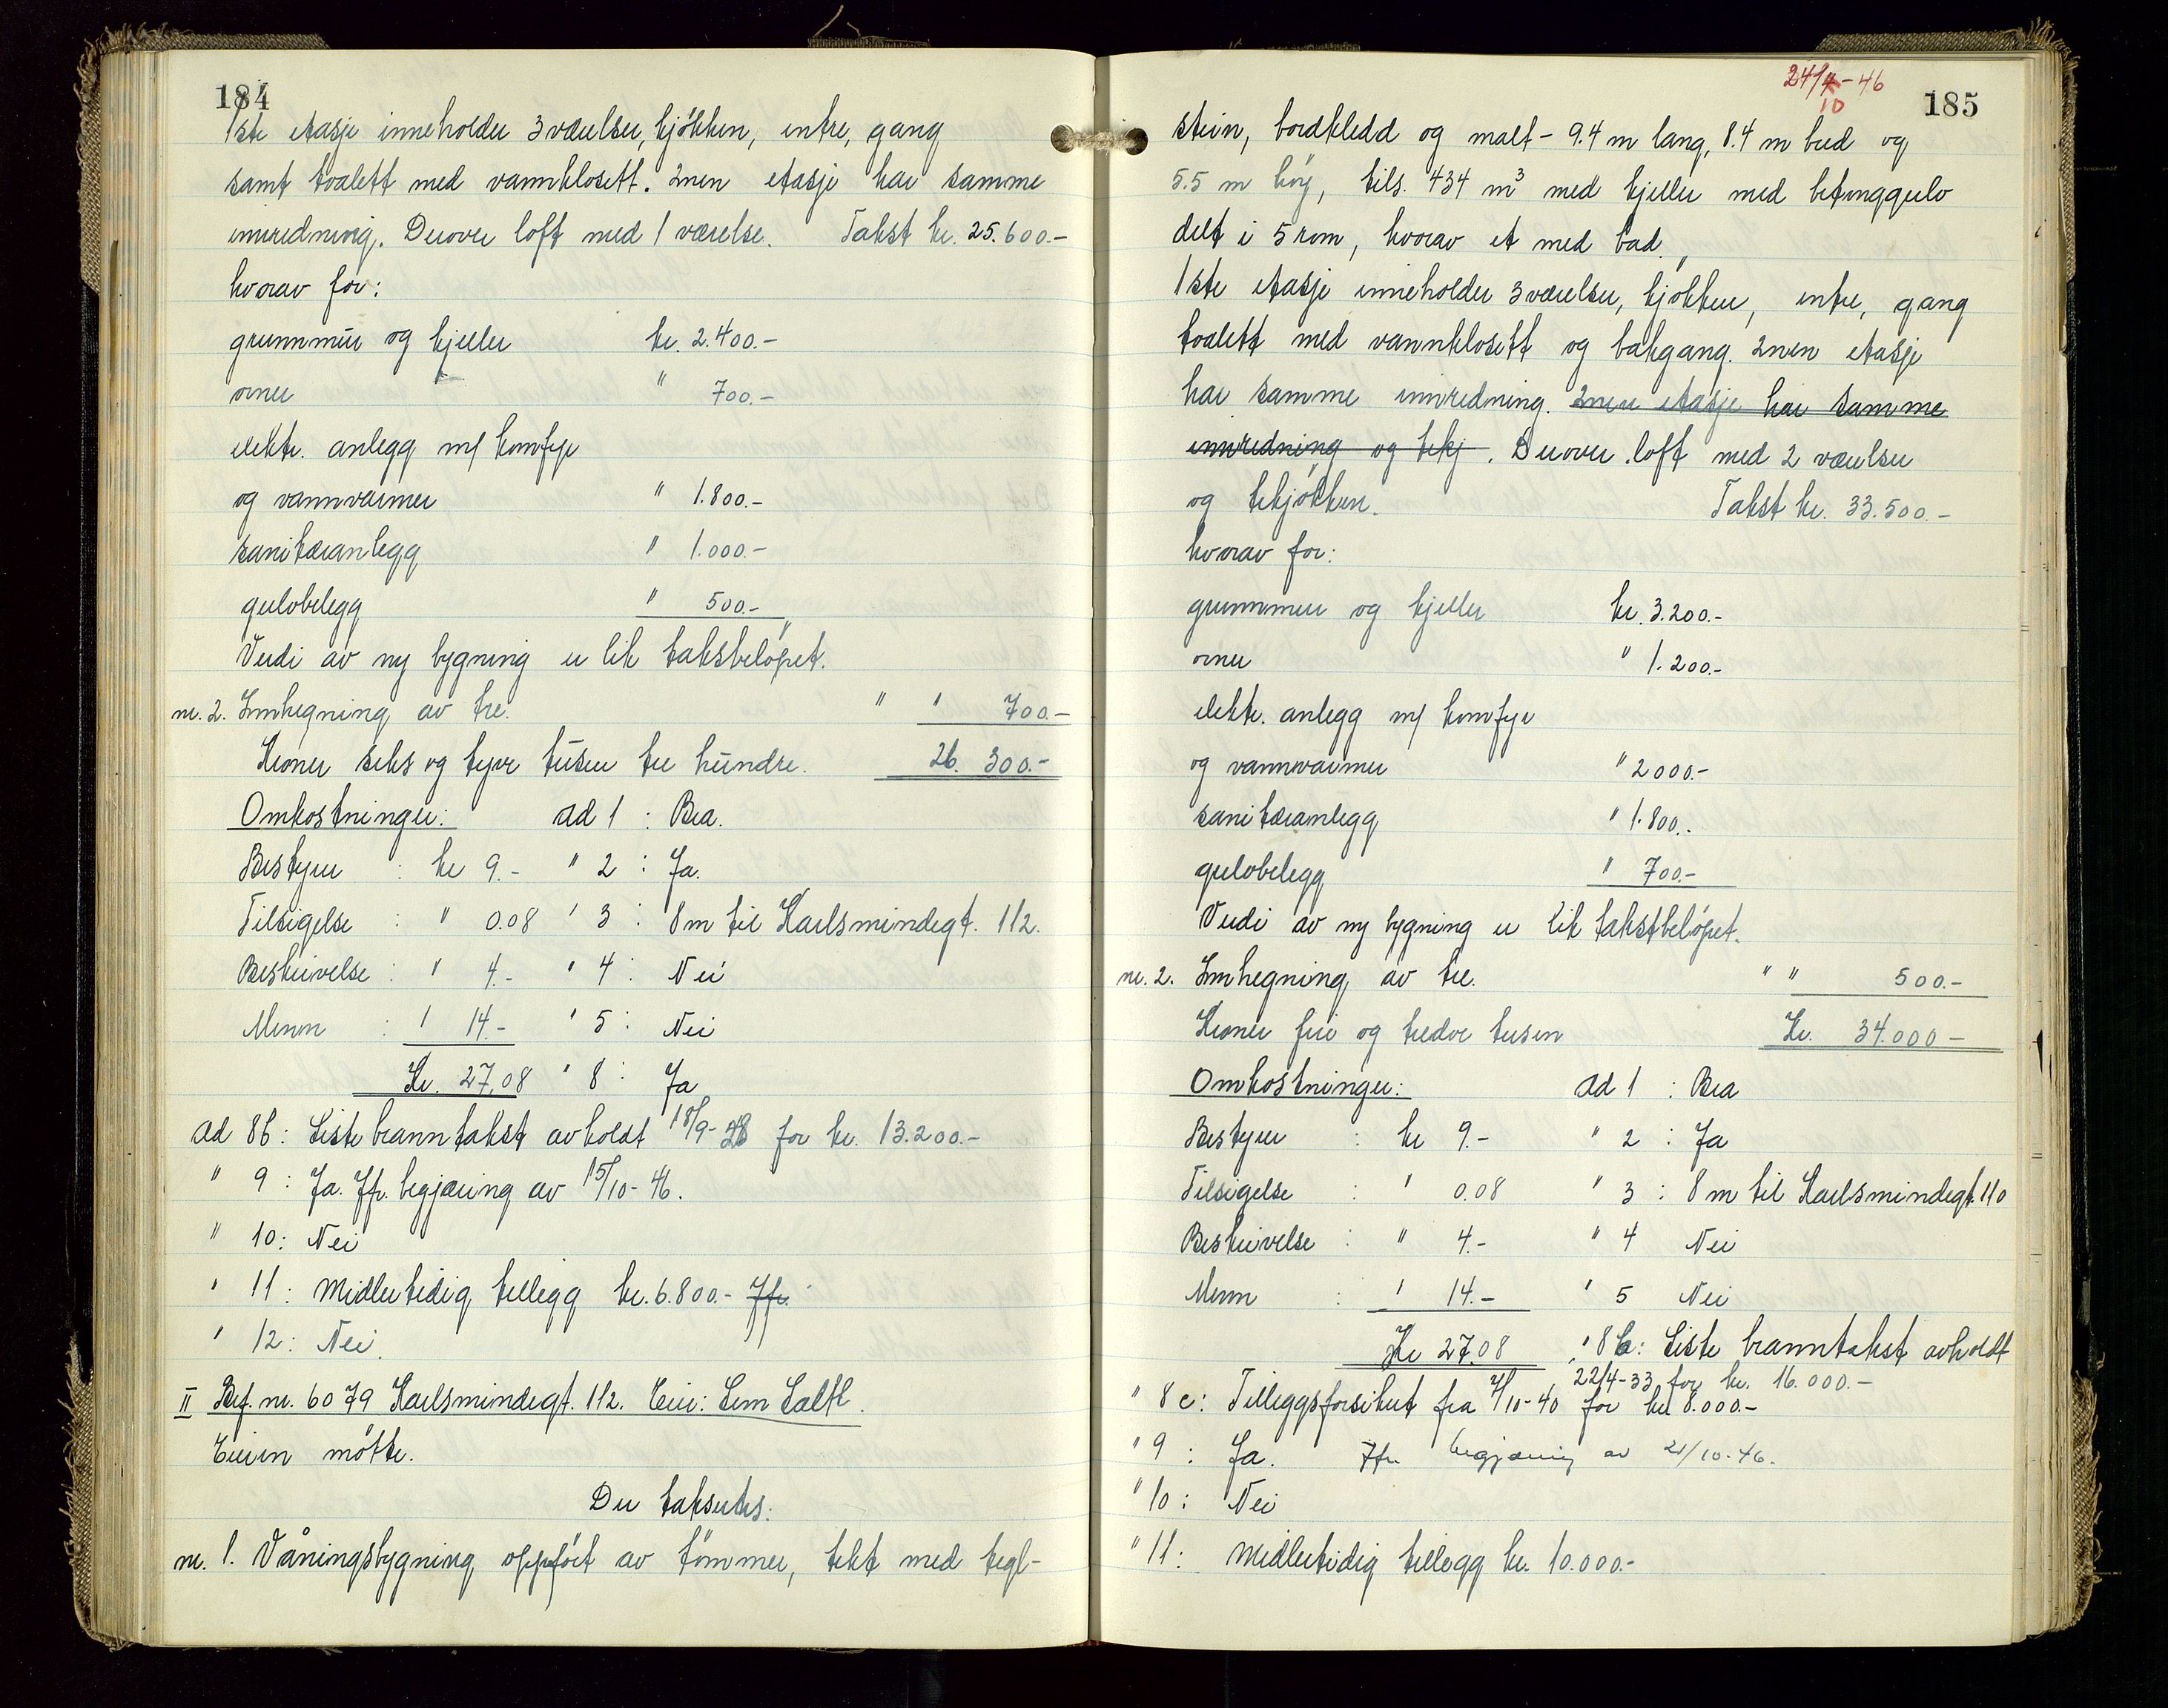 184
1ste etasje inneholder 3 værelser, kjøkken, entre, gang
samt toalett med vannklosett. 2nen etasje har samme
innredning. Derover loft med 1 værelse. Takst kr. 25.600.-
hvorav for:
grunnmur og kjeller kr. 2.400.-
ovner " 700.-
elektr. anlegg m/ komfyr
og vannvarmer " 1.800.-
sanitæranlegg " 1.000.-
gulvbelegg " 500.-
Verdi av ny bygning er lik taksbeløpet.
nr. 2. Innhegning av tre. " " 700.-
Kroner seks og tyve tusen tre hundre. 26.300.-
Omkostninger: ad 1 : Bra.
Bestyrer : kr 9.- " 2 : Ja.
Tilsigelse : " 0.08 " 3 : 8 m til Karlsmindegt. 112.
Beskrivelse : " 4.- " 4 : Nei
Menn : " 14.- " 5 : Nei
Kr. 27,08 " 8 : Ja
ad 8b : Siste branntakst avholdt 18/9-28 for kr. 13.200.-
" 9 : Ja. Jfr. begjæring av 15/10-46.
" 10 : Nei
" 11 : Midlertidig tillegg kr. 6.800.- Jfr.
" 12 : Nei.
II Bef. nr. 6079 Karlsmindegt. 112. Eier: Lem Salth.
Eieren møtte.
Der takseres:
nr. 1. Våningsbygning oppført av tømmer, tekt med tegl-
24/4-46
10
185
stein, bordkledd og malt - 9.4 m lang, 8.4 m bred og
5.5 m høy, tils. 434 m³ med kjeller med betonggulv
delt i 5 rom, hvorav et med bad.
1ste etasje inneholder 3 værelser, kjøkken, entre, gang
toalett med vannklosett og bakgang. 2nen etasje
har samme innredning. 2nen etasje har samme
innredning og tekj. Derover loft med 2 værelser
og tekjøkken. Takst kr. 33.500.-
hvorav for:
grunnmur og kjeller kr. 3.200.-
ovner " 1.200.-
elektr. anlegg m/ komfyr
og vannvarmer " 2000.-
sanitæranlegg " 1.800.-
gulvbelegg " 700.-
Verdi av ny bygning er lik takstbeløpet.
nr. 2. Innhegning av tre. " " 500.-
Kroner fire og tredve tusen Kr. 34.000-
Omkostninger: ad 1 : Bra
Bestyrer : kr 9.- " 2 : Ja
Tilsigelse : " 0.08 " 3 : 8 m til Karlsmindegt. 110
Beskrivelse : " 4.- " 4 Nei
Menn : " 14.- " 5 Nei
Kr 27.08 " 8b : Siste branntakst avholdt
22/4-33 for kr. 16.000.-
" 8c : Tilleggsforsikret fra 4/10-40 for kr 8.000.-
" 9 : Ja. Jfr. begjæring av 21/10-46.
" 10 : Nei
" 11 : Midlertidig tillegg kr. 10.000.-